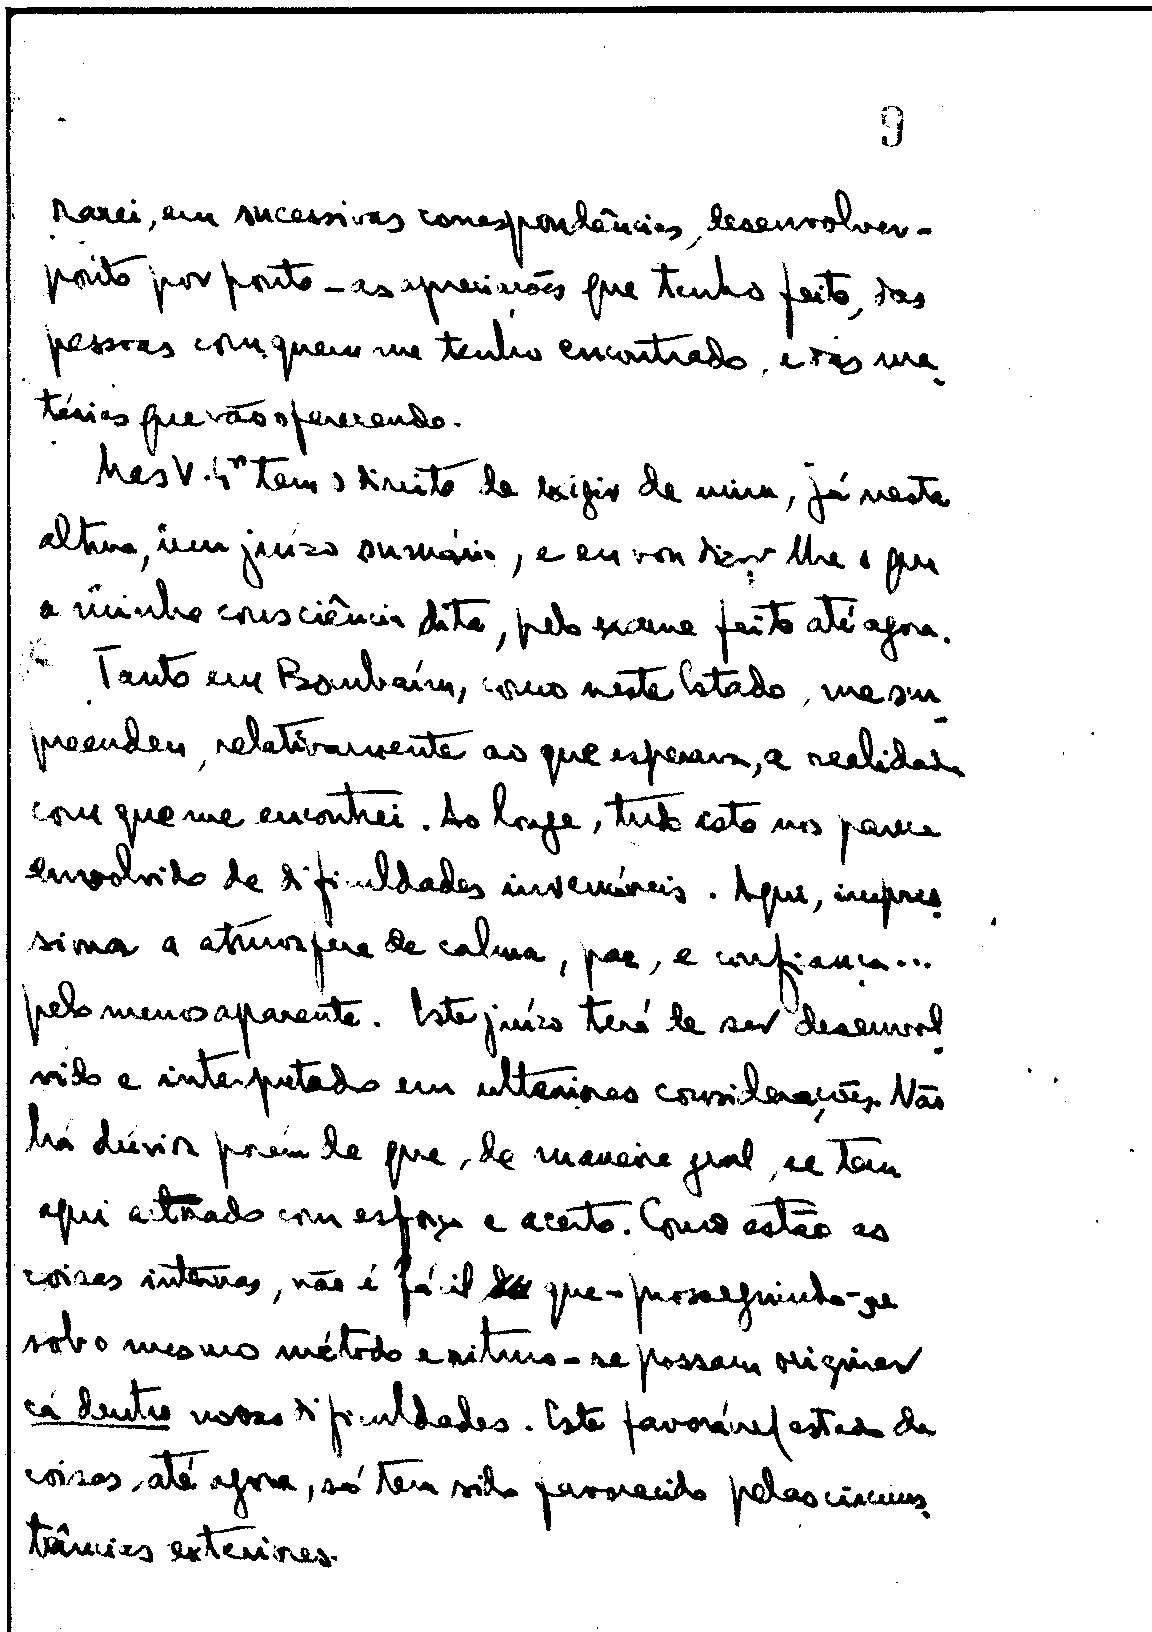 9
rarei, em sucessivas correspondências, desenvolver -
ponto por ponto - as apreciações que tenho feito, das
pessoas com quem me tenho encontrado, e das ma-
térias que vão aparecendo.
Mas V. tem o direito de exigir de mim, já nesta
altura, um juízo sumário, e eu vou dizer lhe o que
a minha consciência dita, pelo exame feito até agora.
Tanto em Bombaím, como neste Estado, me sur-
preendeu, relativamente ao que esperava, a realidade
com que me encontrei. Ao longe, tudo isto nos parece
envolvido de dificuldades invencíveis. Aqui, impres-
siona a atmosfera de calma, paz, e confiança...
pelo menos aparente. Este juízo terá de ser desenvol-
vido e interpretado em ulteriores considerações. Não
há dúvida porém de que, de maneira geral, se tem
aqui actuado com esforço e acerto. Como estão as
coisas internas, não é fácil que - prosseguindo-se
sob o mesmo método e ritmo - se possam originar
cá dentro novas dificuldades. Este favorável estado de
coisas, até agora, só tem sido favorecido pelas circuns-
tâncias exteriores.